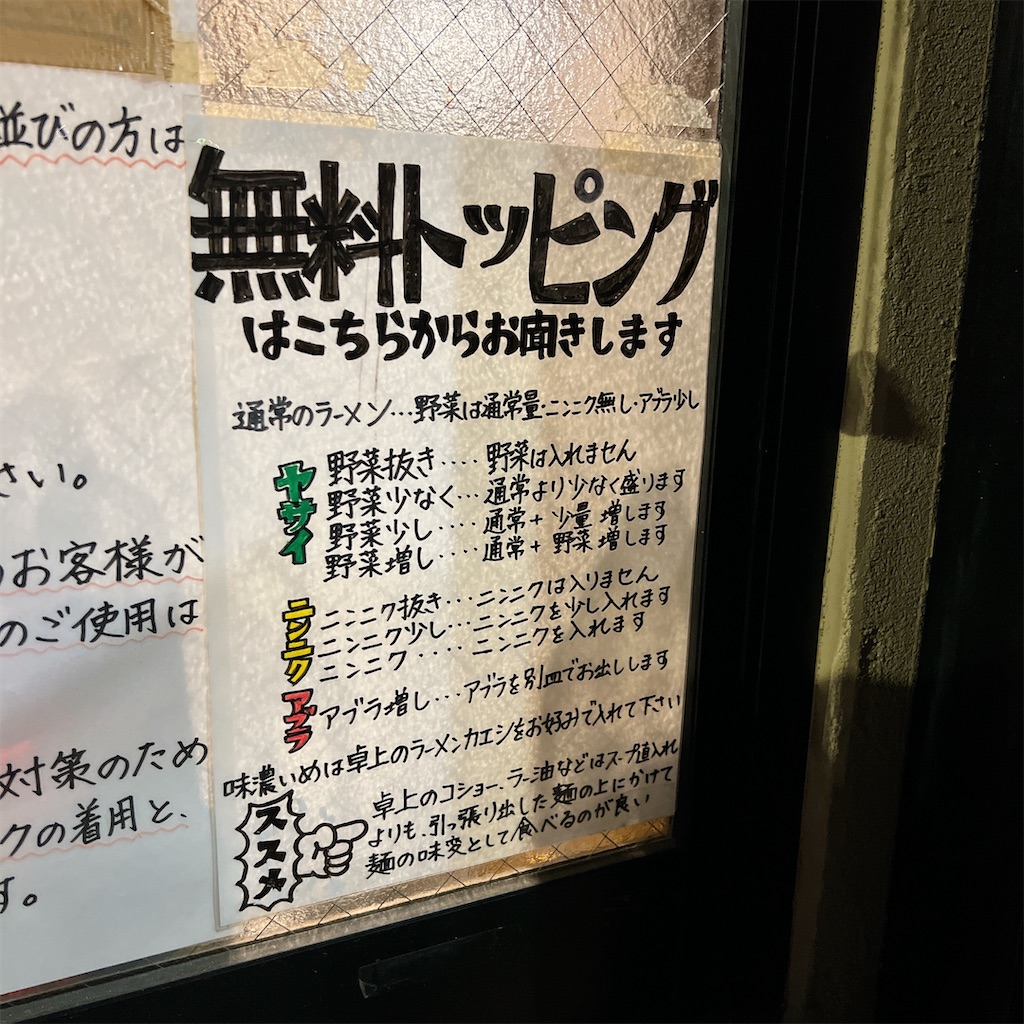 並びの方は
さい。
のお客様が
のご使用は
対策のため
クの着用と、
す。
無料トッピング
はこちらからお聞きします
通常のラーメン…野菜は通常量・ニンニク無し・アブラ少し
ヤサイ
野菜抜き‥‥野菜は入れません
野菜少なく…通常より少なく盛ります
野菜少し‥‥通常+少量増します
野菜増し‥‥通常+野菜増します
ニンニク
ニンニク抜き…ニンニクは入りません
ニンニク少し…ニンニクを少し入れます
ニンニク‥‥ニンニクを入れます
アブラ
アブラ増し…アブラを別皿でお出しします
味濃いめは卓上のラーメンカエシをお好みで入れて下さい
ススメ
卓上のコショー、ラー油などはスープ直入れ
よりも、引っ張り出した麺の上にかけて
麺の味変として食べるのが良い